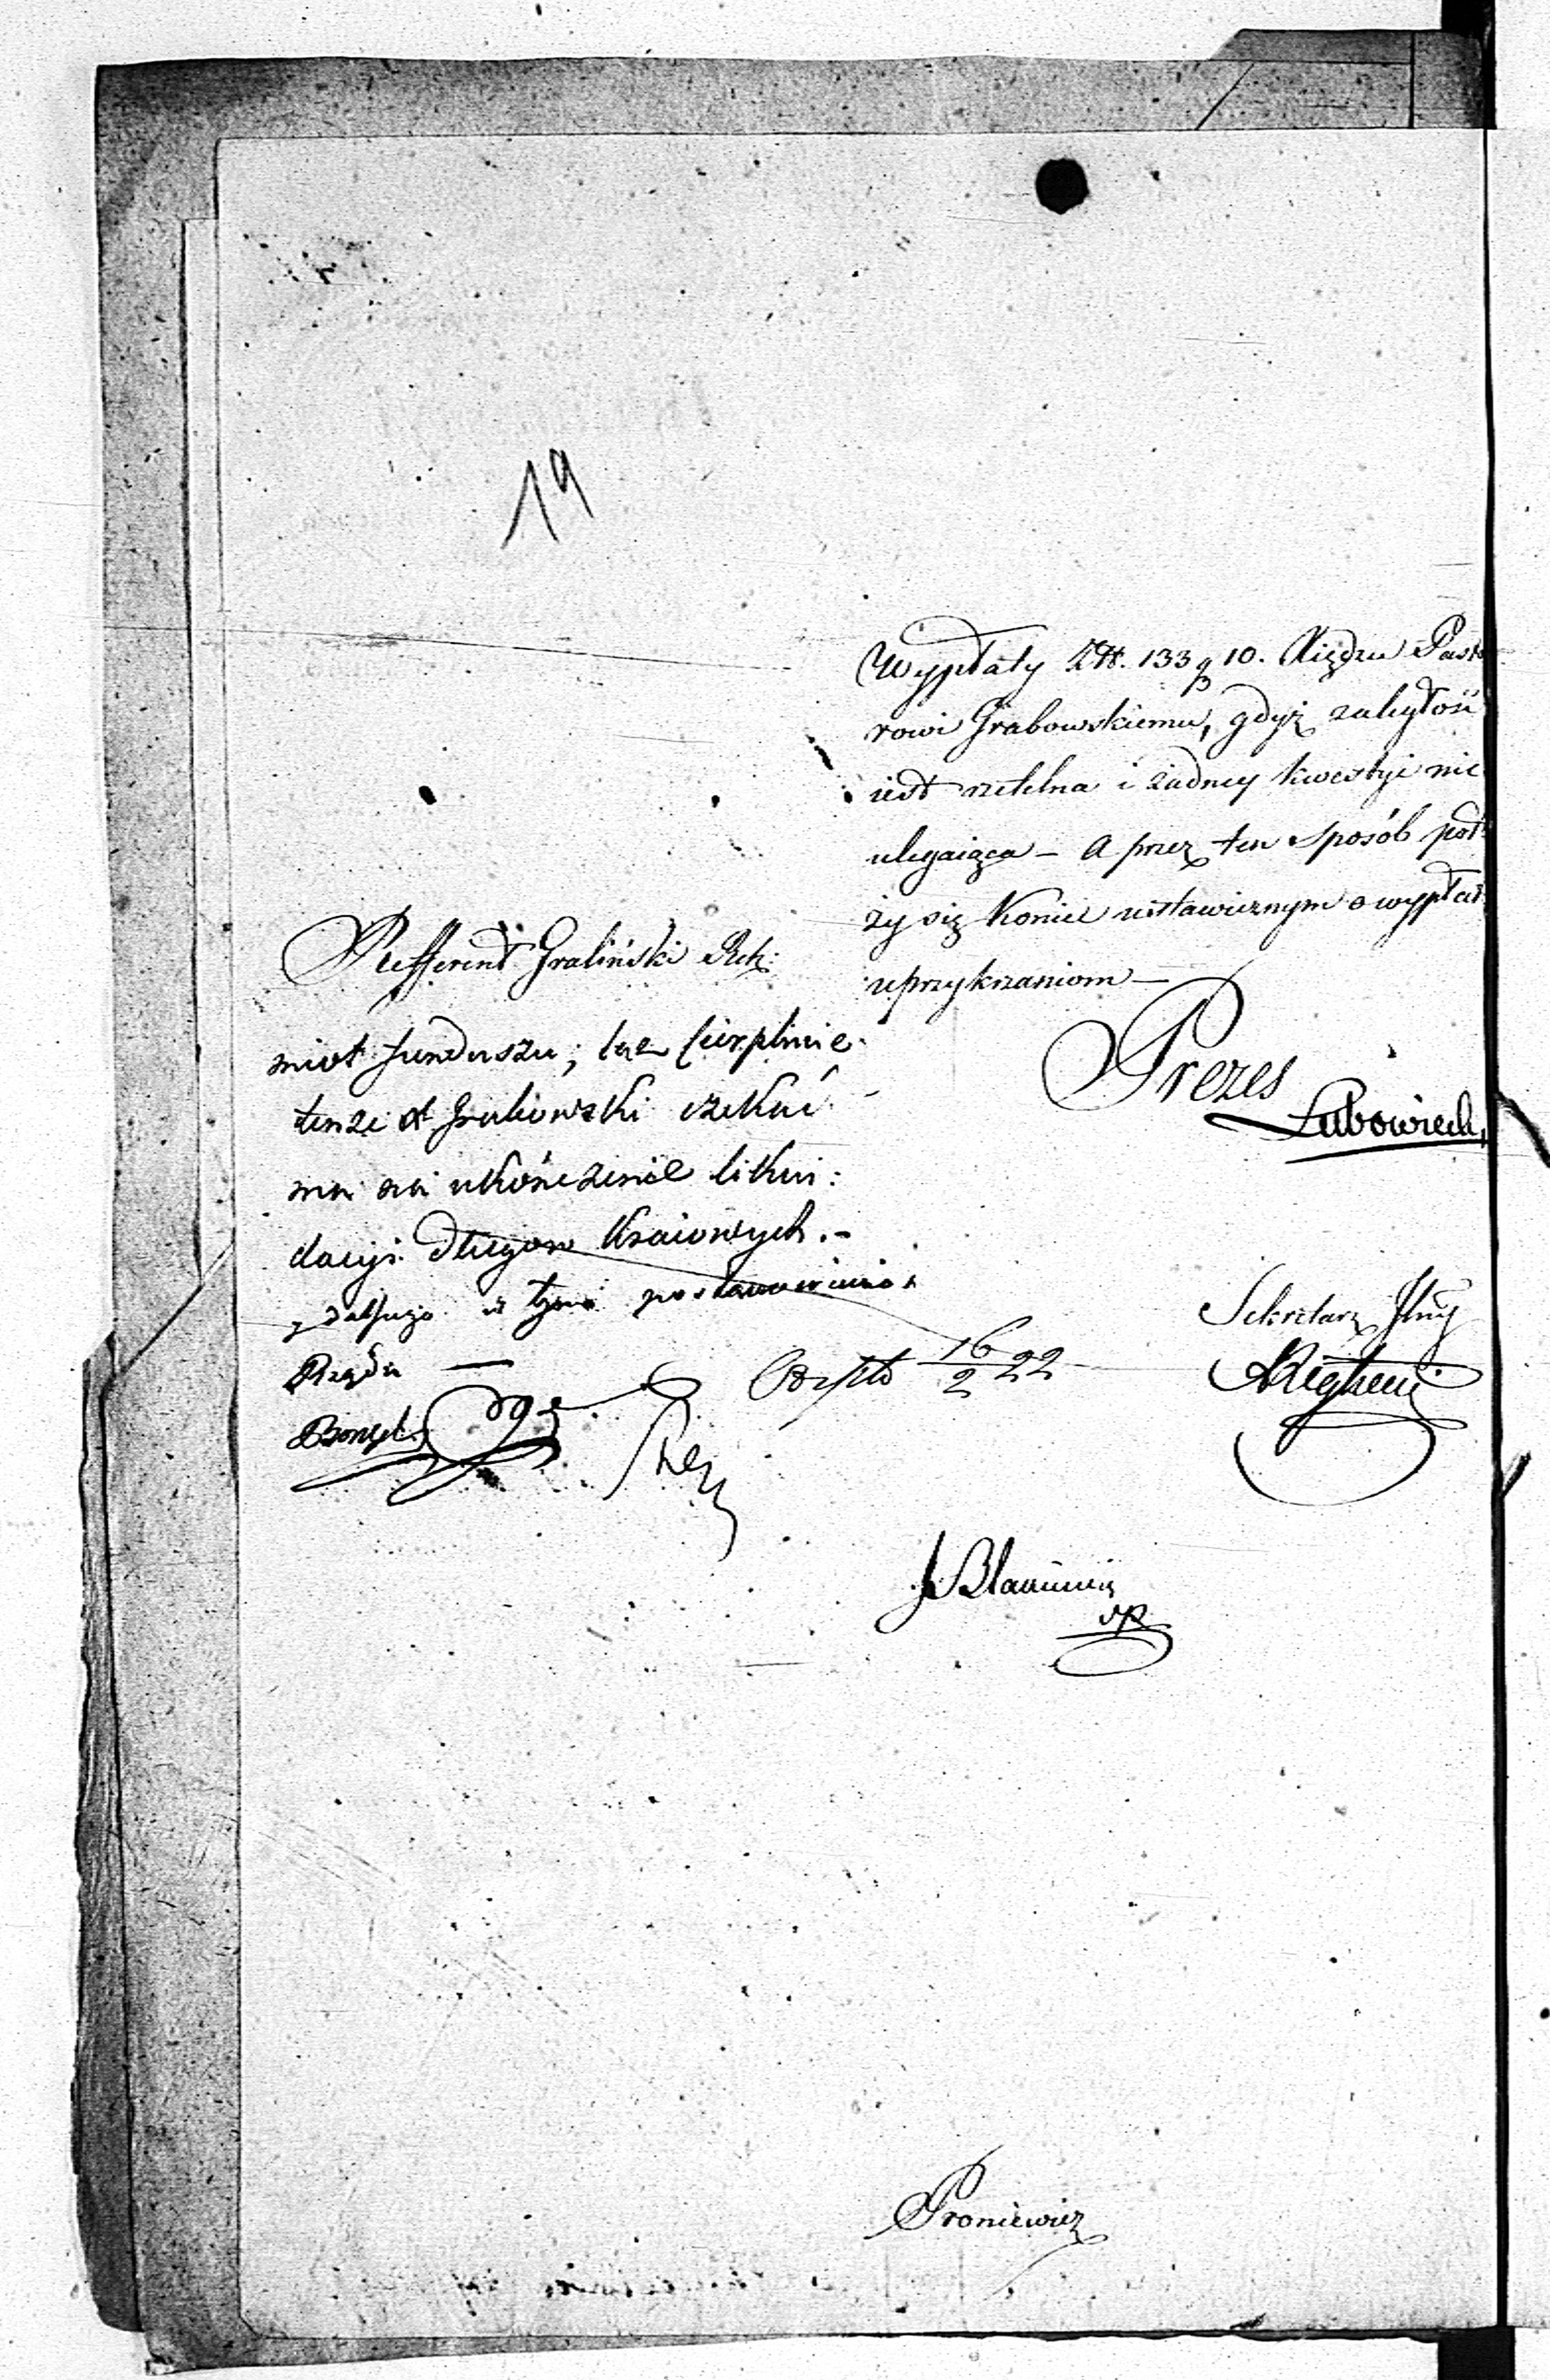 19
Wypłaty Złt. 133 g 10. Xiędzu Pasto
rowi Grabowskiemu, gdyż zaległość
iest rzetelna i żadney kwestyi nie
ulegaiąca – a przez ten sposób poło
ży się koniec ustawicznym o wypłat
uprzykrzaniom –
Prezes
Lubowiecki
Refferent Graliński
niema funduszu; cierpliwie
tenże X Grabowski czekać
ma na ukończenie likwi:
dacyi długów kraiowych. –
w tym postanowienia
Rządu —
16/2 22
Sekretarz Jlny
Proniewicz